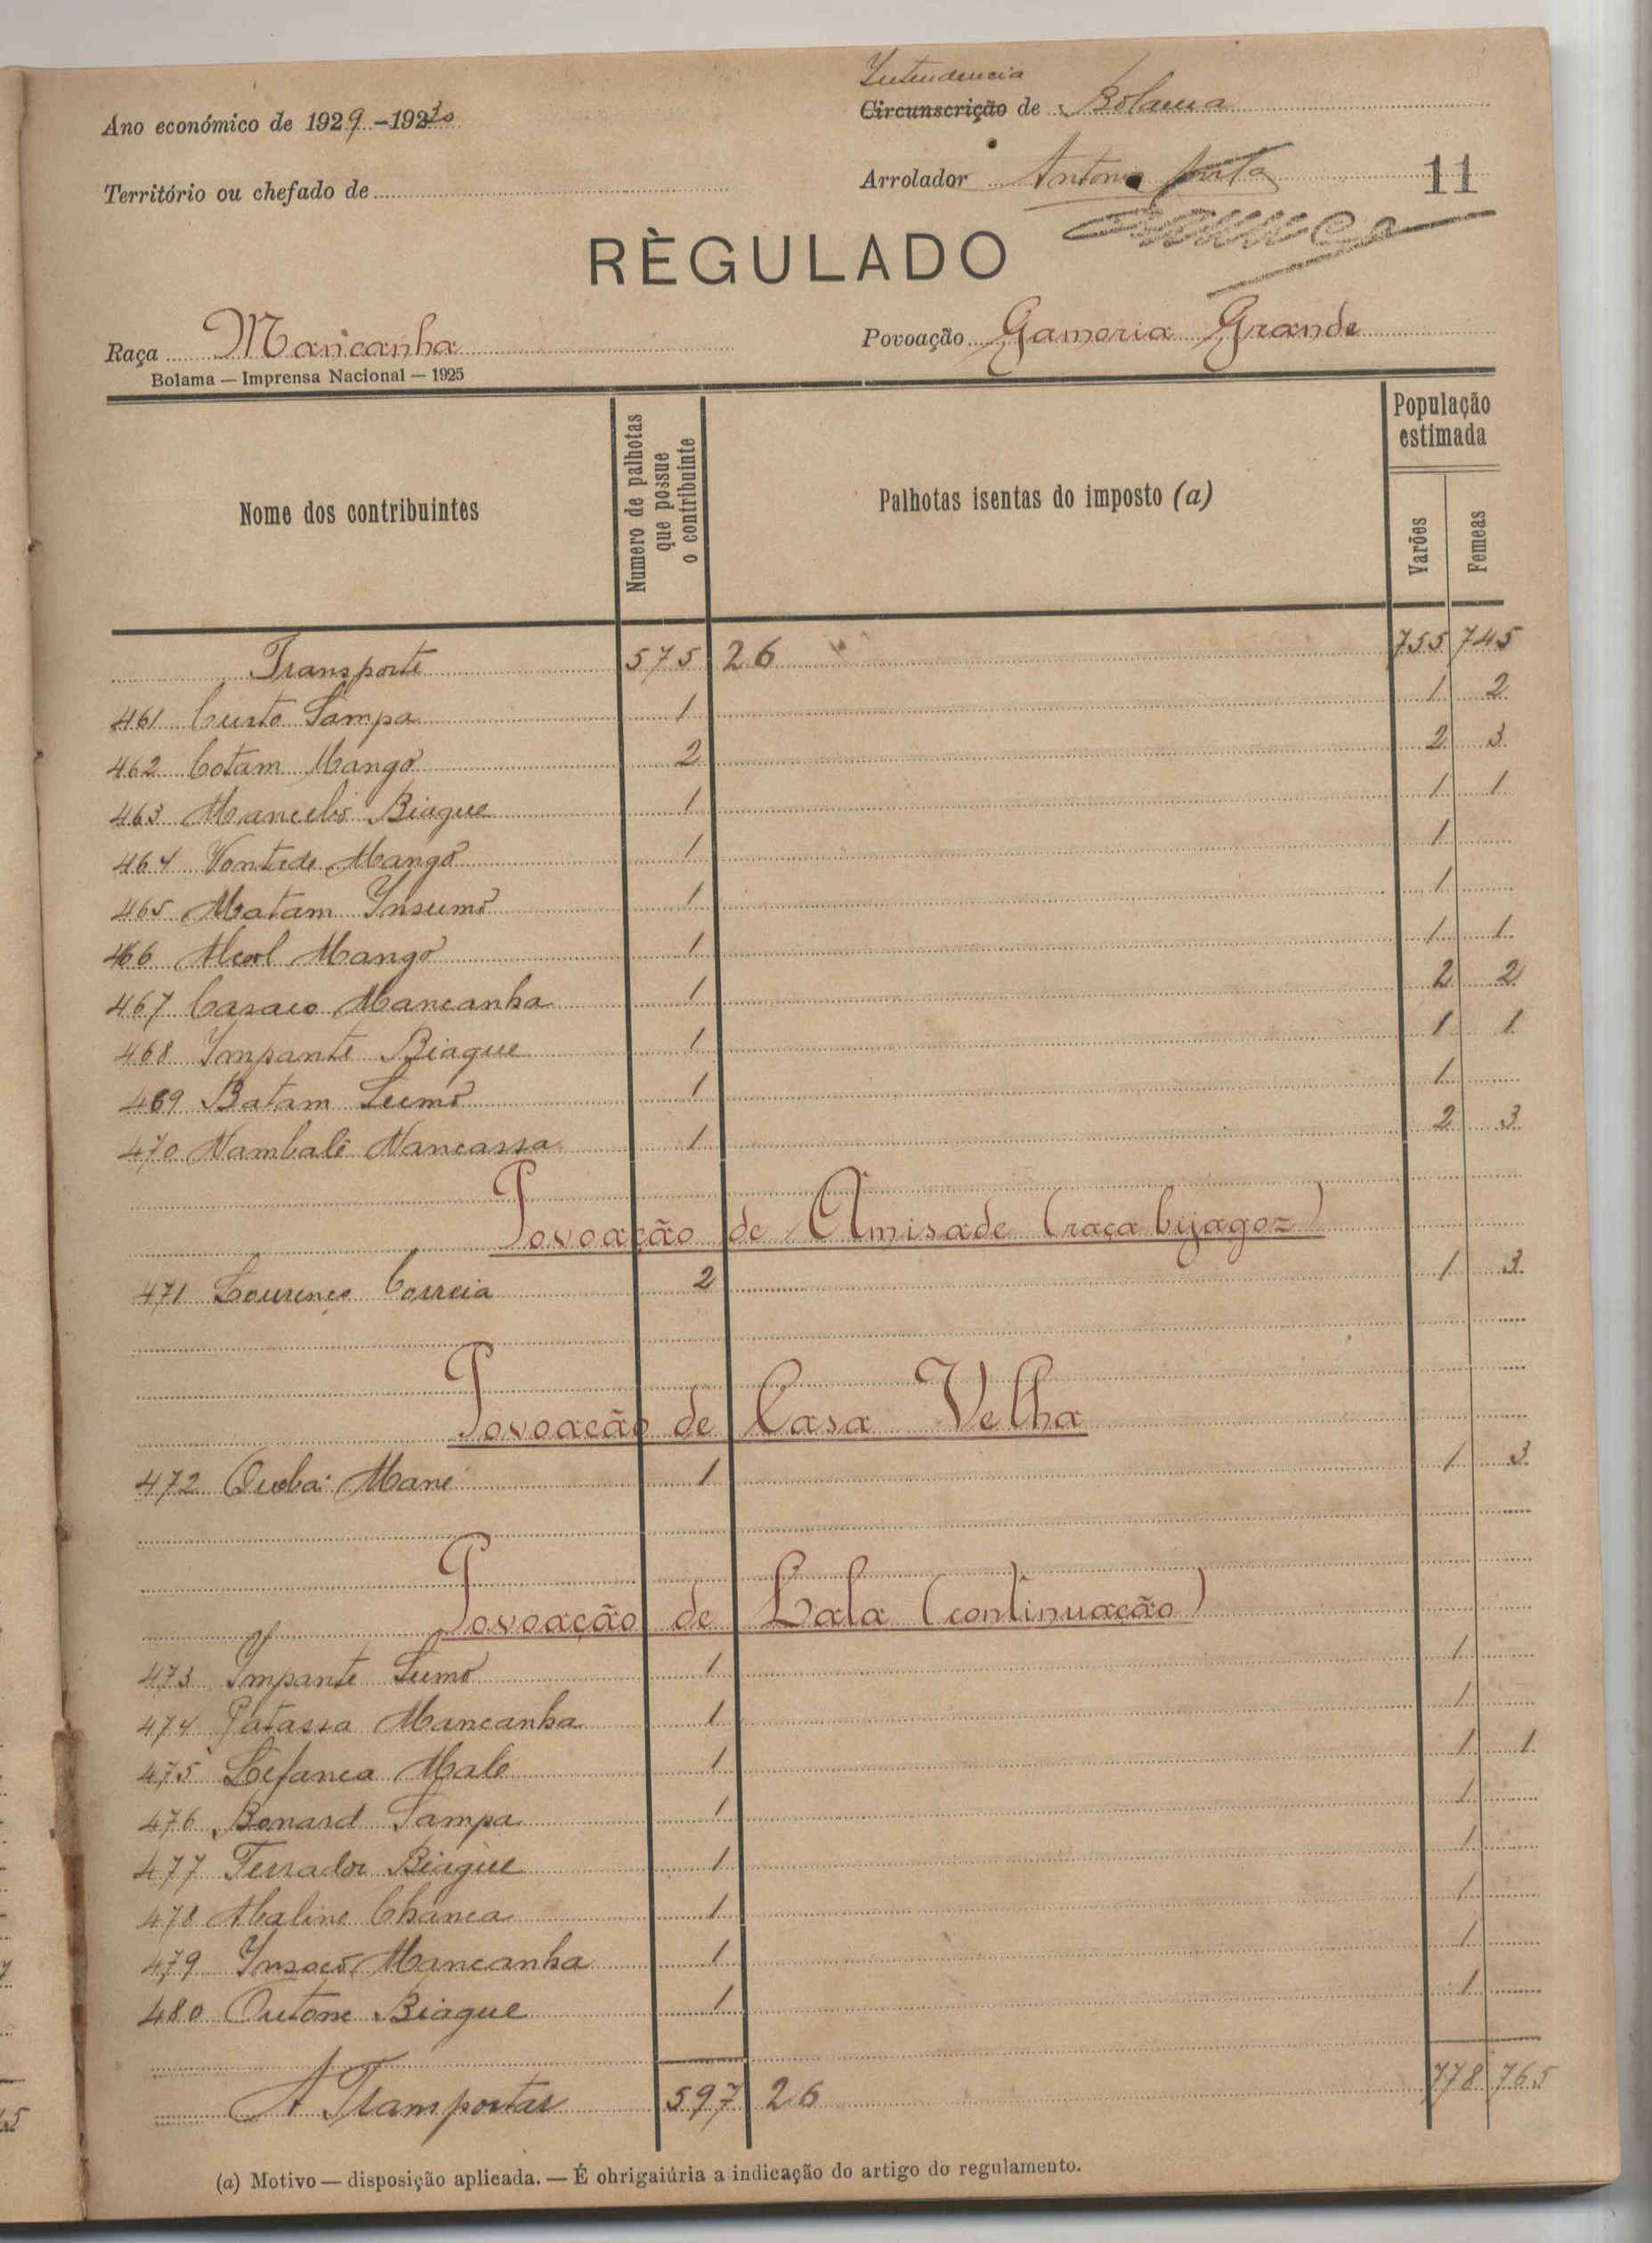 Intendencia
Ano económico de 1929-1930
Circunscrição de Bolama
Território ou chefado de
Arrolador Antonio
11
RÈGULADO
Raça Mancanha
Povoação Gameria Grande
Bolama — Imprensa Nacional — 1925
Nome dos contribuintes
Numero de palhotas que possue o contribuinte
Palhotas isentas do imposto (a)
População estimada
Varões
Femeas
Transporte 575 26 755 745
461 Custo Sampa 1 1 2
462 Cotam Mangô 2 2 3
463 Biague 1 1 1
464 Vontade Mangô 1 1
465 Matam Insumô 1 1
466 Mangô 1 1 1
467 Casaco Mancanha 1 2 2
468 Impanté Biague 1 1 1
469 Batam Sumô 1 1
470 Nambalé Nancassa 1 2 3
Povoação de Amisade (raça bijagoz)
471 Lourenço Correia 2 1 3
Povoação de Casa Velha
472 Quebá Mané 1 1 3
Povoação de Lala (continuação)
473 Impanté Sumô 1 1
474 Patassa Mancanha 1 1
475 Lefanca Malé 1 1 1
476 Bonard Sampa 1 1
477 Terrador Biague 1 1
478 Maline Chanca 1 1
479 Insacô Mancanha 1 1
480 Outone Biague 1 1
A Transportar 597 26 778 765
(a) Motivo — disposição aplicada. — É obrigaiúria a indicação do artigo do regulamento.